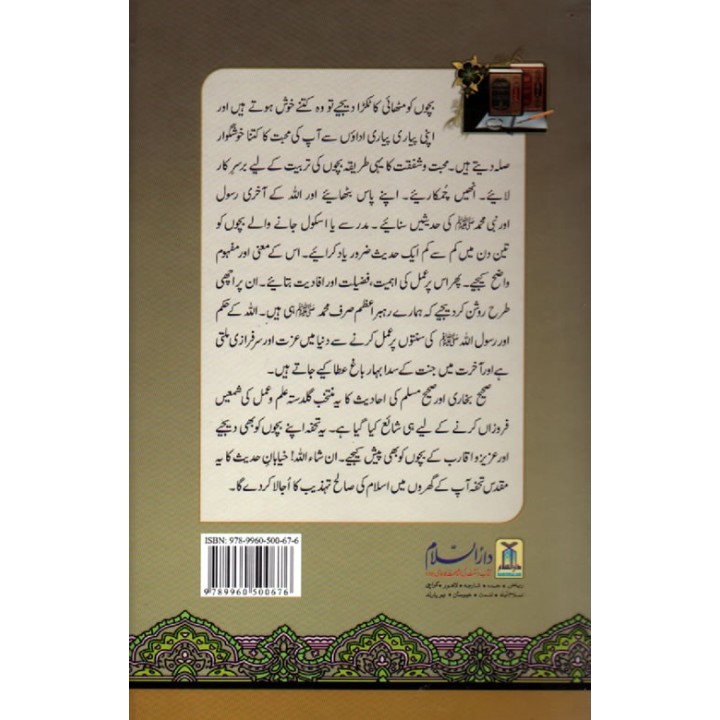 بچوں کو مٹھائی کا ٹکڑا دیجیے تو وہ کتنے خوش ہوتے ہیں اور
اپنی پیاری پیاری اداؤں سے آپ کی محبت کا کتنا خوشگوار
صلہ دیتے ہیں۔ محبت و شفقت کا یہی طریقہ بچوں کی تربیت کے لیے برسرِ کار
لائیے۔ انھیں چُمکاریئے۔ اپنے پاس بٹھائیے اور اللہ کے آخری رسول
اور نبی محمد ﷺ کی حدیثیں سنائیے۔ مدرسے یا اسکول جانے والے بچوں کو
تین دن میں کم سے کم ایک حدیث ضرور یاد کرائیے۔ اس کے معنی اور مفہوم
واضح کیجیے۔ پھر اس پر عمل کی اہمیت، فضیلت اور افادیت بتائیے۔ ان پر اچھی
طرح روشن کر دیجیے کہ ہمارے رہبرِ اعظم صرف محمد ﷺ ہی ہیں۔ اللہ کے حکم
اور رسول اللہ ﷺ کی سنتوں پر عمل کرنے سے دنیا میں عزت اور سرفرازی ملتی
ہے اور آخرت میں جنت کے سدا بہار باغ عطا کیے جاتے ہیں۔
صحیح بخاری اور صحیح مسلم کی احادیث کا یہ منتخب گلدستہ علم و عمل کی شمعیں
فروزاں کرنے کے لیے ہی شائع کیا گیا ہے۔ یہ تحفہ اپنے بچوں کو بھی دیجیے
اور عزیز و اقارب کے بچوں کو بھی پیش کیجیے۔ ان شاء اللہ! خیابانِ حدیث کا یہ
مقدس تحفہ آپ کے گھروں میں اسلام کی صالح تہذیب کا اُجالا کر دے گا۔
ISBN: 978-9960-500-67-6
9 789960 500676
دارالسلام
ریاض • جدہ • شارجہ • لاہور • کراچی
اسلام آباد • لندن • ہیوسٹن • نیویارک